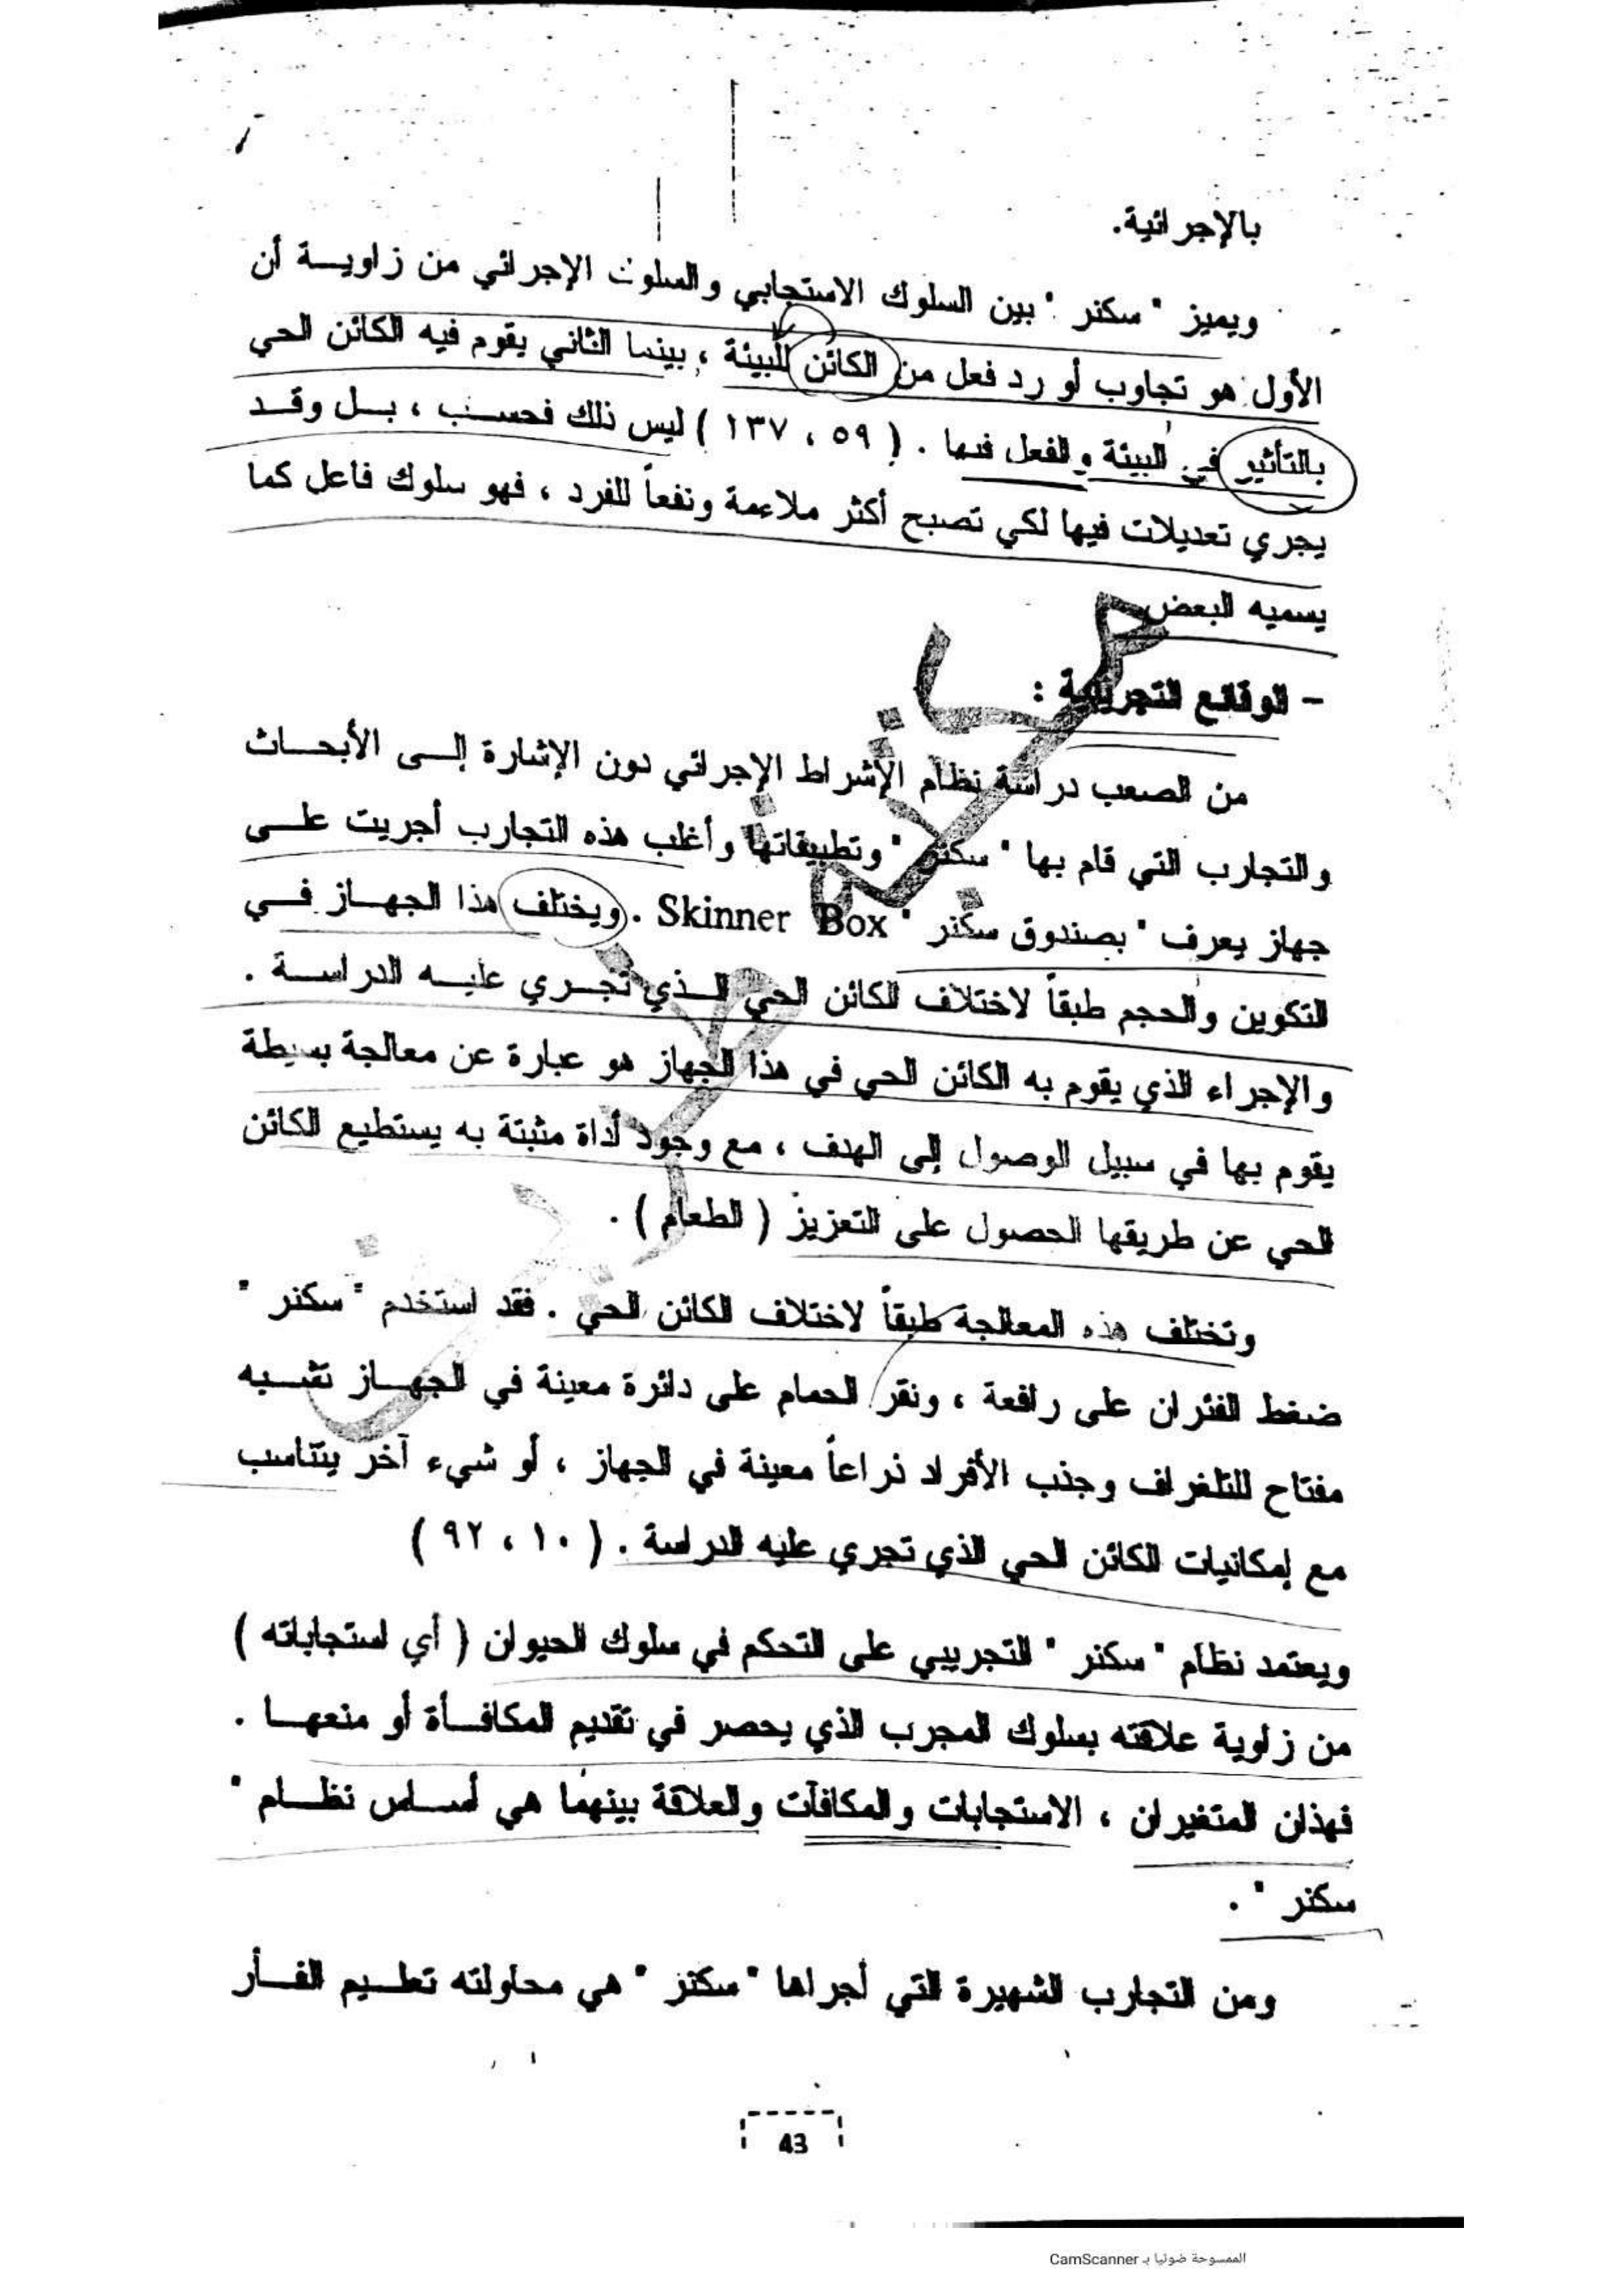 بالإجرائية.
ويميز " سكنر " بين السلوك الاستجابي والسلوك الإجرائي من زاويـــة أن
الأول هو تجاوب أو رد فعل من الكائن للبيئة ، بينما الثاني يقوم فيه الكائن الحي
بالتأثير في البيئة والفعل فيها . ( ٥٩ ، ١٣٧ ) ليس ذلك فحسب ، بــل وقــد
يجري تعديلات فيها لكي تصبح أكثر ملاءمة ونفعاً للفرد ، فهو سلوك فاعل كما
يسميه البعض
– الوقائع التجريبية :
من الصعب دراسة نظام الإشراط الإجرائي دون الإشارة إلــى الأبحــاث
والتجارب التي قام بها " سكنر " وتطبيقاتها وأغلب هذه التجارب أجريت علــى
جهاز يعرف " بصندوق سكنر " Skinner Box . ويختلف هذا الجهــاز فــي
التكوين والحجم طبقاً لاختلاف الكائن الحي الــذي تجــري عليــه الدراســة .
والإجراء الذي يقوم به الكائن الحي في هذا الجهاز هو عبارة عن معالجة بسيطة
يقوم بها في سبيل الوصول إلى الهدف ، مع وجود أداة مثبتة به يستطيع الكائن
الحي عن طريقها الحصول على التعزيز ( الطعام ) .
وتختلف هذه المعالجة طبقاً لاختلاف الكائن الحي . فقد استخدم " سكنر "
ضغط الفئران على رافعة ، ونقر الحمام على دائرة معينة في الجهــاز تشــبه
مفتاح للتلغراف وجذب الأفراد ذراعاً معينة في الجهاز ، أو شيء آخر يتناسب
مع إمكانيات الكائن الحي الذي تجري عليه الدراسة . ( ١٠ ، ٩٢ )
ويعتمد نظام " سكنر " التجريبي على التحكم في سلوك الحيوان ( أي استجاباته )
من زاوية علاقته بسلوك المجرب الذي يحصر في تقديم المكافــأة أو منعهــا .
فهذان المتغيران ، الاستجابات والمكافآت والعلاقة بينهما هي أســاس نظــام "
سكنر " .
ومن التجارب الشهيرة التي أجراها " سكنر " هي محاولته تعلــيم الفــأر
43
الممسوحة ضوئيا بـ CamScanner